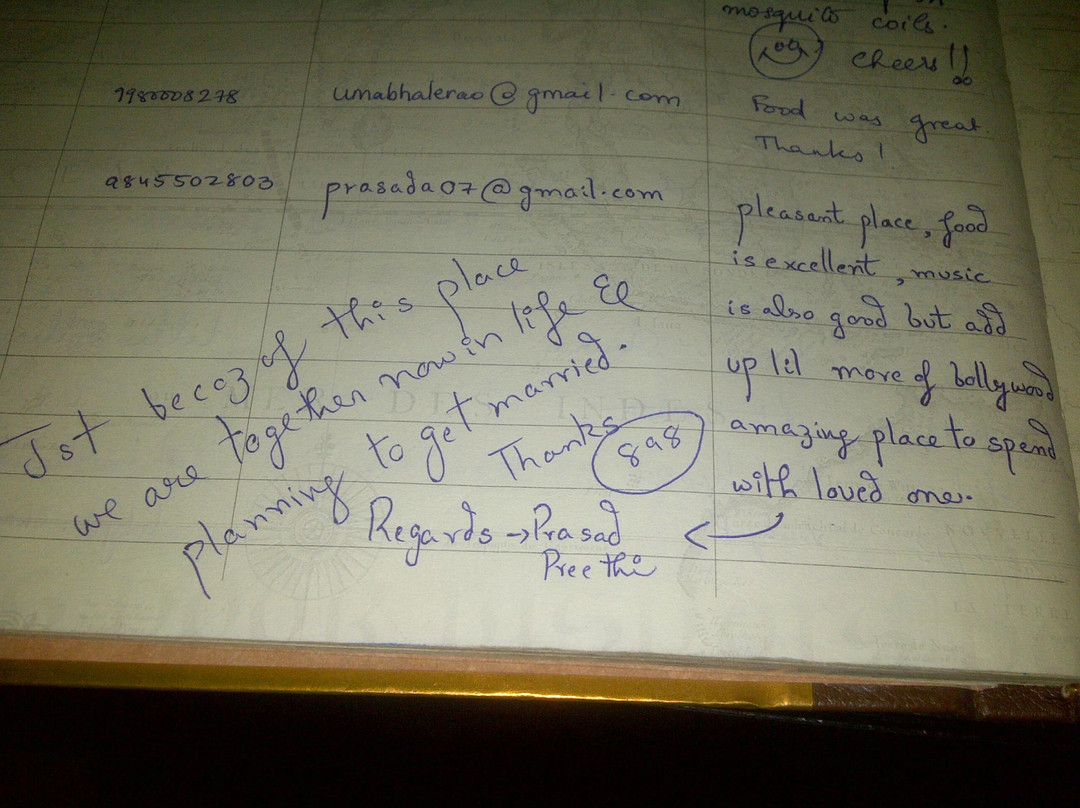 mosquito coils.
cheers!!
9980008278 umabhalerao@gmail.com
Food was great.
Thanks!
9845502803 prasada07@gmail.com
pleasant place, food
is excellent, music
is also good but add
up lil more of bollywood
amazing place to spend
with loved one.
Jst becoz of this place
we are together now in life &
planning to get married.
Thanks
898
Regards → Prasad
Preethi